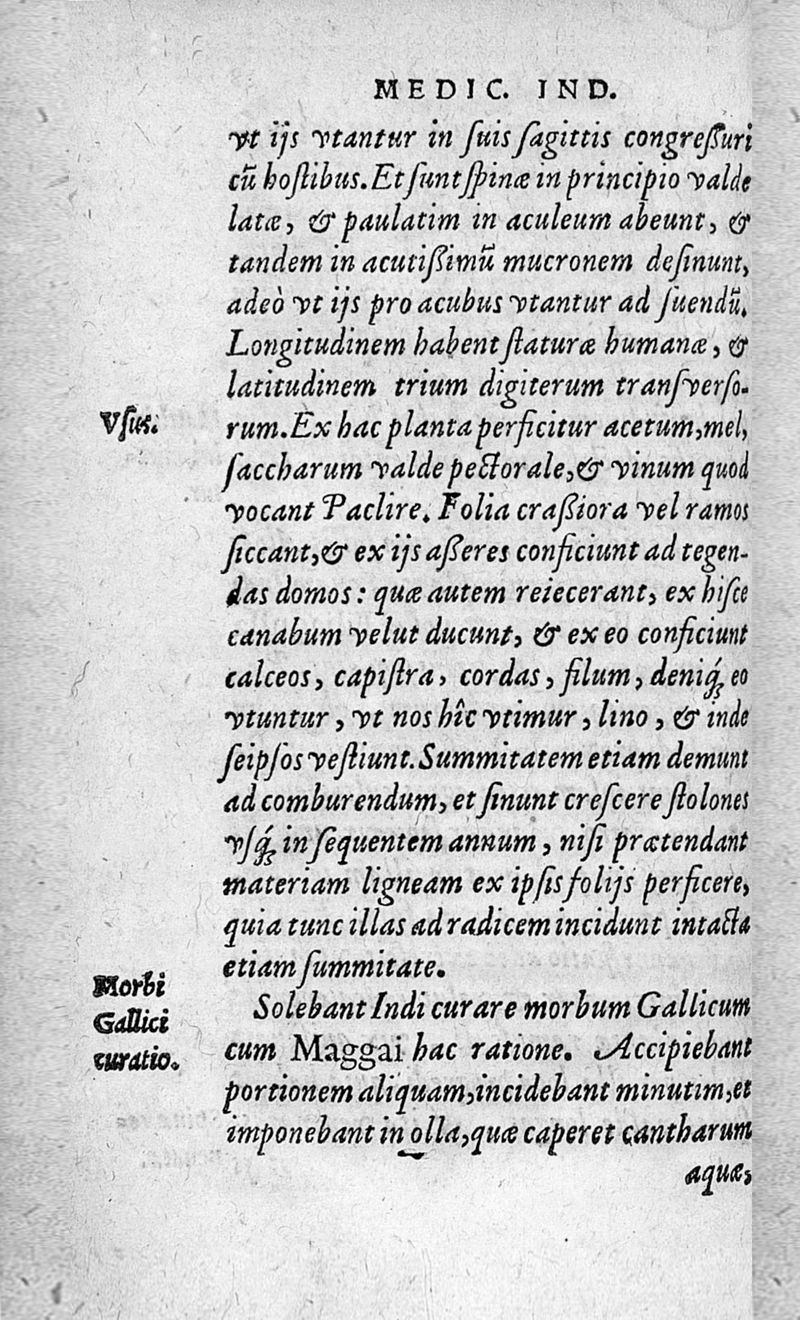 MEDIC. IND.
vt ijs vtantur in ſuis ſagittis congreſſuri
cũ hoſtibus. Et ſunt ſpinæ in principio valde
latæ, & paulatim in aculeum abeunt, &
tandem in acutißimũ mucronem deſinunt,
adeò vt ijs pro acubus vtantur ad ſuendũ.
Longitudinem habent ſtaturæ humanæ, &
latitudinem trium digiterum tranſverſo-
Vſus.
rum. Ex hac planta perficitur acetum, mel,
ſaccharum valde pectorale, & vinum quod
vocant Paclire. Folia craßiora vel ramos
ſiccant, & ex ijs aſſeres conficiunt ad tegen-
das domos: quæ autem reiecerant, ex hiſce
canabum velut ducunt, & ex eo conficiunt
calceos, capiſtra, cordas, filum, deniq́; eo
vtuntur, vt nos hîc vtimur, lino, & inde
ſeipſos veſtiunt. Summitatem etiam demunt
ad comburendum, et ſinunt creſcere ſtolones
vſq́; in ſequentem annum, niſi prætendant
materiam ligneam ex ipſis folijs perficere,
quia tunc illas ad radicem incidunt intacta
etiam ſummitate.
Morbi
Gallici
curatio.
Solebant Indi curare morbum Gallicum
cum Maggai hac ratione. Accipiebant
portionem aliquam, incidebant minutim, et
imponebant in olla, quæ caperet cantharum
aquæ,